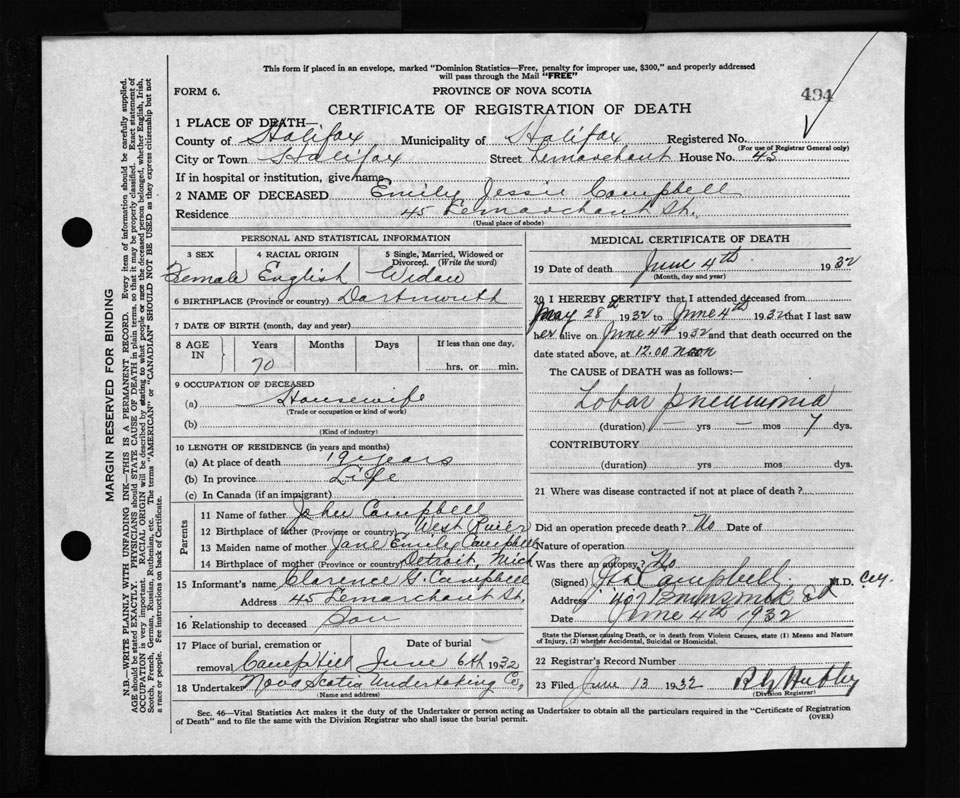 This form if placed in an envelope, marked "Dominion Statistics—Free, penalty for improper use, $300," and properly addressed
will pass through the Mail "FREE"
FORM 6.
PROVINCE OF NOVA SCOTIA
494
CERTIFICATE OF REGISTRATION OF DEATH
1 PLACE OF DEATH—
County of Halifax Municipality of Halifax Registered No.
(For use of Registrar General only)
City or Town Halifax Street Lemarchant House No. 45
If in hospital or institution, give name
2 NAME OF DECEASED Emily Jessie Campbell
Residence 45 Lemarchant St.
(Usual place of abode)
MARGIN RESERVED FOR BINDING
N.B.—WRITE PLAINLY WITH UNFADING INK—THIS IS A PERMANENT RECORD. Every item of information should be carefully supplied.
AGE should be stated EXACTLY. PHYSICIANS should STATE CAUSE OF DEATH in plain terms, so that it may be properly classified. Exact statement of
OCCUPATION is very important. RACIAL ORIGIN will be described by stating to what people or race the deceased person belonged, whether English, Irish,
Scotch, French, German, Russian, Ruthenian, etc. The terms "AMERICAN" or "CANADIAN" SHOULD NOT BE USED as they express citizenship but not
a race or people. See instructions on back of Certificate.
PERSONAL AND STATISTICAL INFORMATION
3 SEX
Female
4 RACIAL ORIGIN
English
5 Single, Married, Widowed or
Divorced. (Write the word)
Widow
6 BIRTHPLACE (Province or country) Dartmouth
7 DATE OF BIRTH (month, day and year)
8 AGE
IN
Years
70
Months
Days
If less than one day,
hrs. or min.
9 OCCUPATION OF DECEASED
(a) Housewife
(Trade or occupation or kind of work)
(b)
(Kind of industry)
10 LENGTH OF RESIDENCE (in years and months)
(a) At place of death 19 years
(b) In province Life
(c) In Canada (if an immigrant)
Parents
11 Name of father John Campbell
12 Birthplace of father (Province or country) West River
13 Maiden name of mother Jane Emily Campbell
14 Birthplace of mother (Province or country) Detroit, Mich
15 Informant's name Clarence G. Campbell
Address 45 Lemarchant St.
16 Relationship to deceased Son
17 Place of burial, cremation or
removal Camp Hill
Date of burial
June 6th 1932
18 Undertaker Nova Scotia Undertaking Co.
(Name and address)
MEDICAL CERTIFICATE OF DEATH
19 Date of death June 4th 1932
(Month, day and year)
20 I HEREBY CERTIFY that I attended deceased from
May 28th 1932 to June 4th 1932 that I last saw
her alive on June 4th 1932 and that death occurred on the
date stated above, at 12.00 noon
The CAUSE of DEATH was as follows:—
Lobar pneumonia
(duration) — yrs — mos 7 dys.
CONTRIBUTORY
(duration) yrs mos dys.
21 Where was disease contracted if not at place of death?
Did an operation precede death? No Date of
Nature of operation
Was there an autopsy? No
(Signed) Campbell M.D.
Address 407 Brunswick
Date June 4th 1932
State the Disease causing Death, or in death from Violent Causes, state (1) Means and Nature
of Injury, (2) whether Accidental, Suicidal or Homicidal.
22 Registrar's Record Number
23 Filed June 13 1932
(Division Registrar)
Sec. 46—Vital Statistics Act makes it the duty of the Undertaker or person acting as Undertaker to obtain all the particulars required in the "Certificate of Registration
of Death" and to file the same with the Division Registrar who shall issue the burial permit.
(OVER)